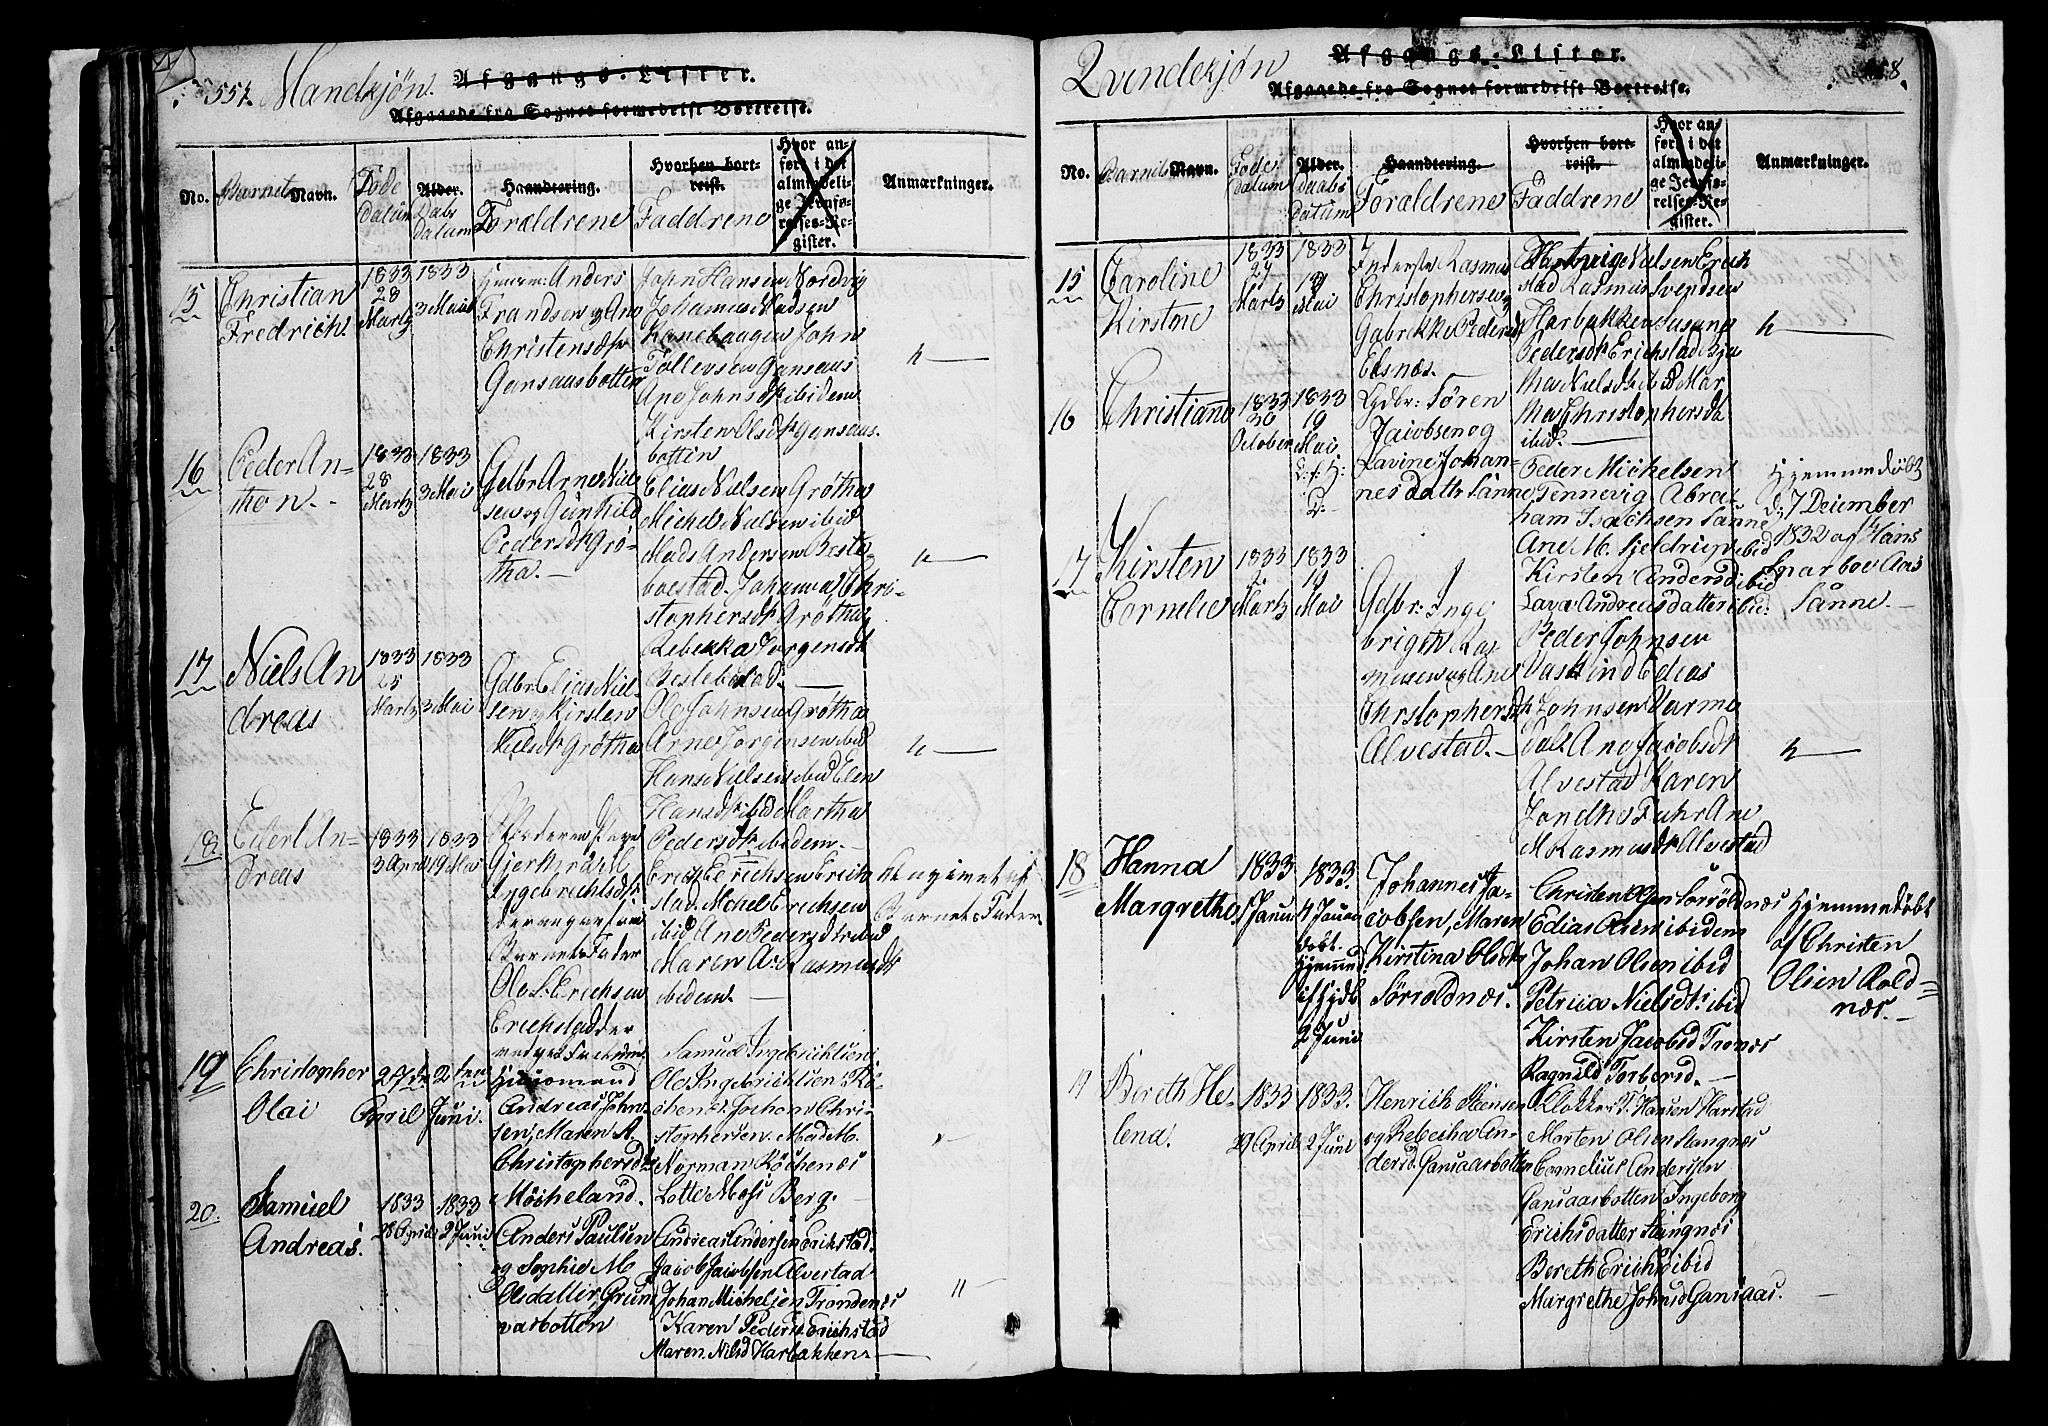 557. Mandkjøn. Afgangs-Lister.
Afgagede fra Sognet formedelst Bortreise.
No.
Barnets Navn.
Føde
Datum
Alder.
Dabs
datum
Haandtering.
Forældrene
Hvorhen bort-
reist.
Faddrene
Hvor an-
ført i det
almindeli-
ge Jevnfø-
relses-Re-
gister.
Anmærkninger.
15
Christian
Fredrich.
1833
28
Martz
1833
3 Mai
Huusm: Anders
Frandsen og Ane
Christensdtr
Gansaasbotten
John Hansen Nordvig
Johannes Madsen
Kanebaagen John
Tollevsen Gansaas
Ane Johnsdtr ibidem
Kirsten Olsdtr Gansaas-
botten
16
Peder An-
thon.
1833
28
Martz
1833
3 Mai
Gdbr Arne Niel-
sen og Gunhild
Pedersdtr Grø-
tha.
Elias Nielsen Grøtha
Michel Nielsen ibid
Mads Andersen Beste-
boestad. Johanna Chri-
stophersdtr Grøtha
Rebekka Jørgensdt
Bestebostad.
17
Niels An
dreas
1833
25
Martz
1833
3 Mai
Gdbr Elias Niel-
sen og Kirsten
Nielsdtr Grøtha
Ole Johnsen Grøtha
Arne Jørgensen ibid
Hans Nielsen ibid Elen
Hansdtr ibid Martha
Pedersdtr ibidem.
18
Eilert An-
dreas
1833
3 April
1833
19 Mai
Moderen Pige
Gjertrud
Ingebrichtsdtr
Barnets Fader
Ole S. Erichsen
Erichstad
Erich Erichsen Erich
stad Michel Erichsen
ibid Ane Pedersdtr ibid
Maren A: Rasmusdtr
ibidem.
Angivet af
Barnets Fader
19
Christopher
Olai
27de
April
2den
Juni.
Huusmand
Andreas John-
sen, Maren A.
Christophersdtr
Møcheland.
Samuel Ingebrichtsen
Ole Ingebrichtsen Kø-
chen. Johan Chri-
stophersen. Mad M.
Norman Køchenæs
Lotte Moss Berg.
20.
Samuel
Andreas.
1833
28 April
1833
2 Juni
Anders Paulsen
og Sophie M
Olsdatter Grun
vasbotten
Andreas Andersen Erikstad.
Jacob Jacobsen Alvestad
Johan Michelsen Trondenæs
Karen Pedersd Erichstad
Maren Nilsd Harbakken
Qvindekjøn
Afgangs-Lister.
558.
Afgagede fra Sognet formedelst Bortreise.
No.
Barnets Navn.
Føde
datum
Alder.
Daabs
datum
Haandtering.
Forældrene
Hvorhen bort-
reist.
Faddrene
Hvor an-
ført i det
almindeli-
ge Jevnfø-
relses-Re-
gister.
Anmærkninger.
15
Caroline
Kirstine
1833
27
Martz
1833
19
Mai
Inderste Rasmus
Christophersen og
Gabrikke Pedersdt
Elsnæs.
Nielsen Erich
stad Rasmus Svendsen
Harbakken Susanna
Pedersdtr Erichstad
Nielsdtr ibid Mar
Christophersdt
ibid.
16
Christiana
1833
30
October
1833
19
Mai.
Gdbr: Søren
Jacobsen og
Lavine Johan-
nesdattr Sanne
Peder Michelsen
Tennevig Abra-
ham Isachsen Sanne
Ane M. Hjeldrup ibid
Kirsten Andersd ibid
Lava Andreasdatter ibid:
Hjemmedøbt
d: 7 December
1832 af Hans
Sparboe Aas
Sanne.
17
Kirsten
Cornelie
1833
2
Martz
1833
19
Mai
Gdbr: Inge
brigth Ras
musen og Ane
Christophersdt
Alvestad.
Peder Johnsen
Vaskind Edias
Johnsen Varme
dal Ane Jacobsdt
Alvestad Karen
Fuhr Ane
M Rasmusdt Alvestad
18
Hanna
Margrethe
1833
1 Janu
1833.
4 Januar
døbt
hjemme
2 Juni
Johannes Ja-
cobsen, Maren
Kirstina Olsdtr
Sørroldnæs.
Christen Olsen Sørroldnæs
Edias Olsen ibidem
Johan Olsen ibid
Petricia Nielsdtr ibid
Kirsten Jacobsd Tronæs
Ragnild Torbersd.
Hjemmedøbt
af Christen
Olsen Rold-
næs.
19
Bereth He-
lena.
1833
29 April
1833.
2 Juni
Henrich Steensen
og Rebecha An-
dersd. Gansaasbotten
Klokker T. Hansen Harstad
Morten Olsen Stangnæs
Cornelius Andersen
Gansaasbotten Ingeborg
Erichsdatter Stangnæs
Bereth Erichsd ibid
Margrethe Johnsd Gansaas.